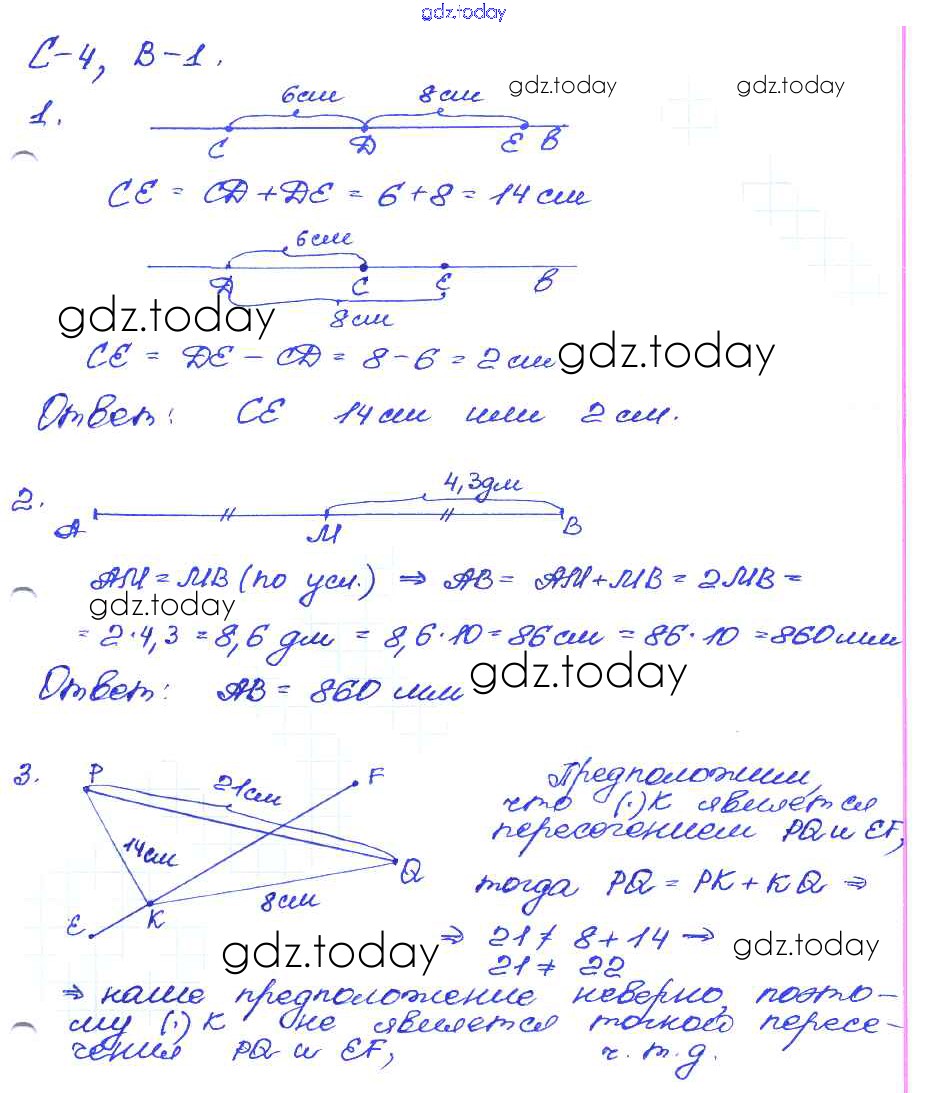 gdz.today
С-4, В-1.
gdz.today gdz.today
1. 6см 8см
C D E B
CE = CD + DE = 6 + 8 = 14 см
6см
D C E B
8см
gdz.today
CE = DE - CD = 8 - 6 = 2 см
gdz.today
Ответ: CE 14 см или 2 см.
2. 4,3дм
A M B
AM = MB (по усл.) ⇒ AB = AM + MB = 2MB =
gdz.today
= 2·4,3 = 8,6 дм = 8,6·10 = 86 см = 86·10 = 860 мм
Ответ: AB = 860 мм
gdz.today
3. P 21см F
14см Q
8см
E K
Предположим,
что (·)K является
пересечением PQ и EF,
тогда PQ = PK + KQ ⇒
⇒ 21 ≠ 8 + 14 ⇒
21 ≠ 22
gdz.today gdz.today
⇒ наше предположение неверно, поэто-
му (·) K не является точкой пересе-
чения PQ и EF, ч.т.д.